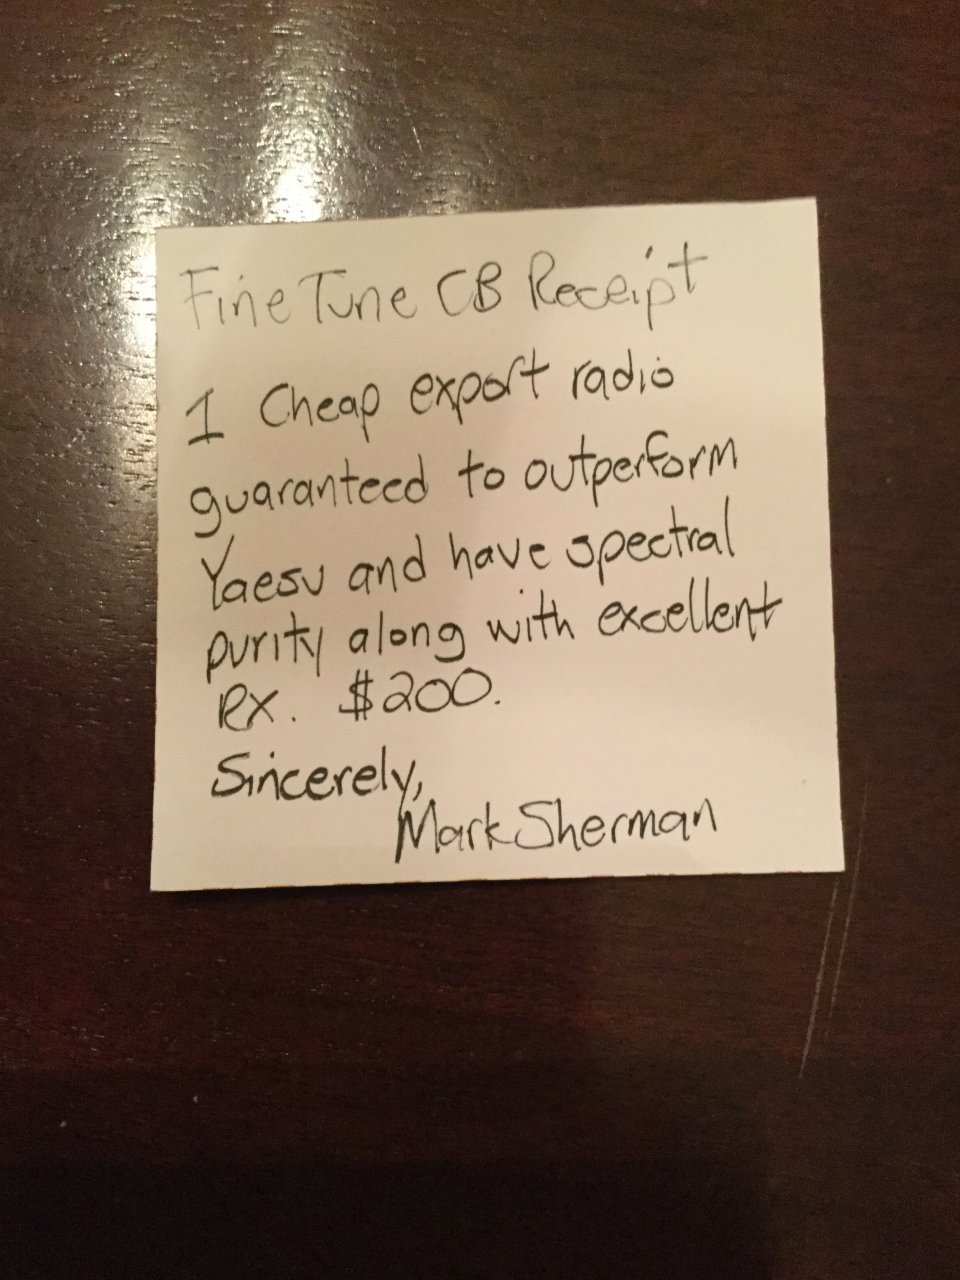 Fine Tune CB Receipt
1 Cheap export radio
guaranteed to outperform
Yaesu and have spectral
purity along with excellent
RX. $200.
Sincerely,
Mark Sherman